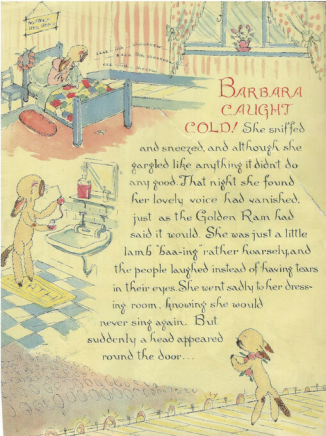 BARBARA
CAUGHT
COLD! She sniffed
and sneezed, and although she
gargled like anything it didn't do
any good. That night she found
her lovely voice had vanished,
just as the Golden Ram had
said it would. She was just a little
lamb "baa-ing" rather hoarsely, and
the people laughed instead of having tears
in their eyes. She went sadly to her dress-
ing room, knowing she would
never sing again. But
suddenly a head appeared
round the door...